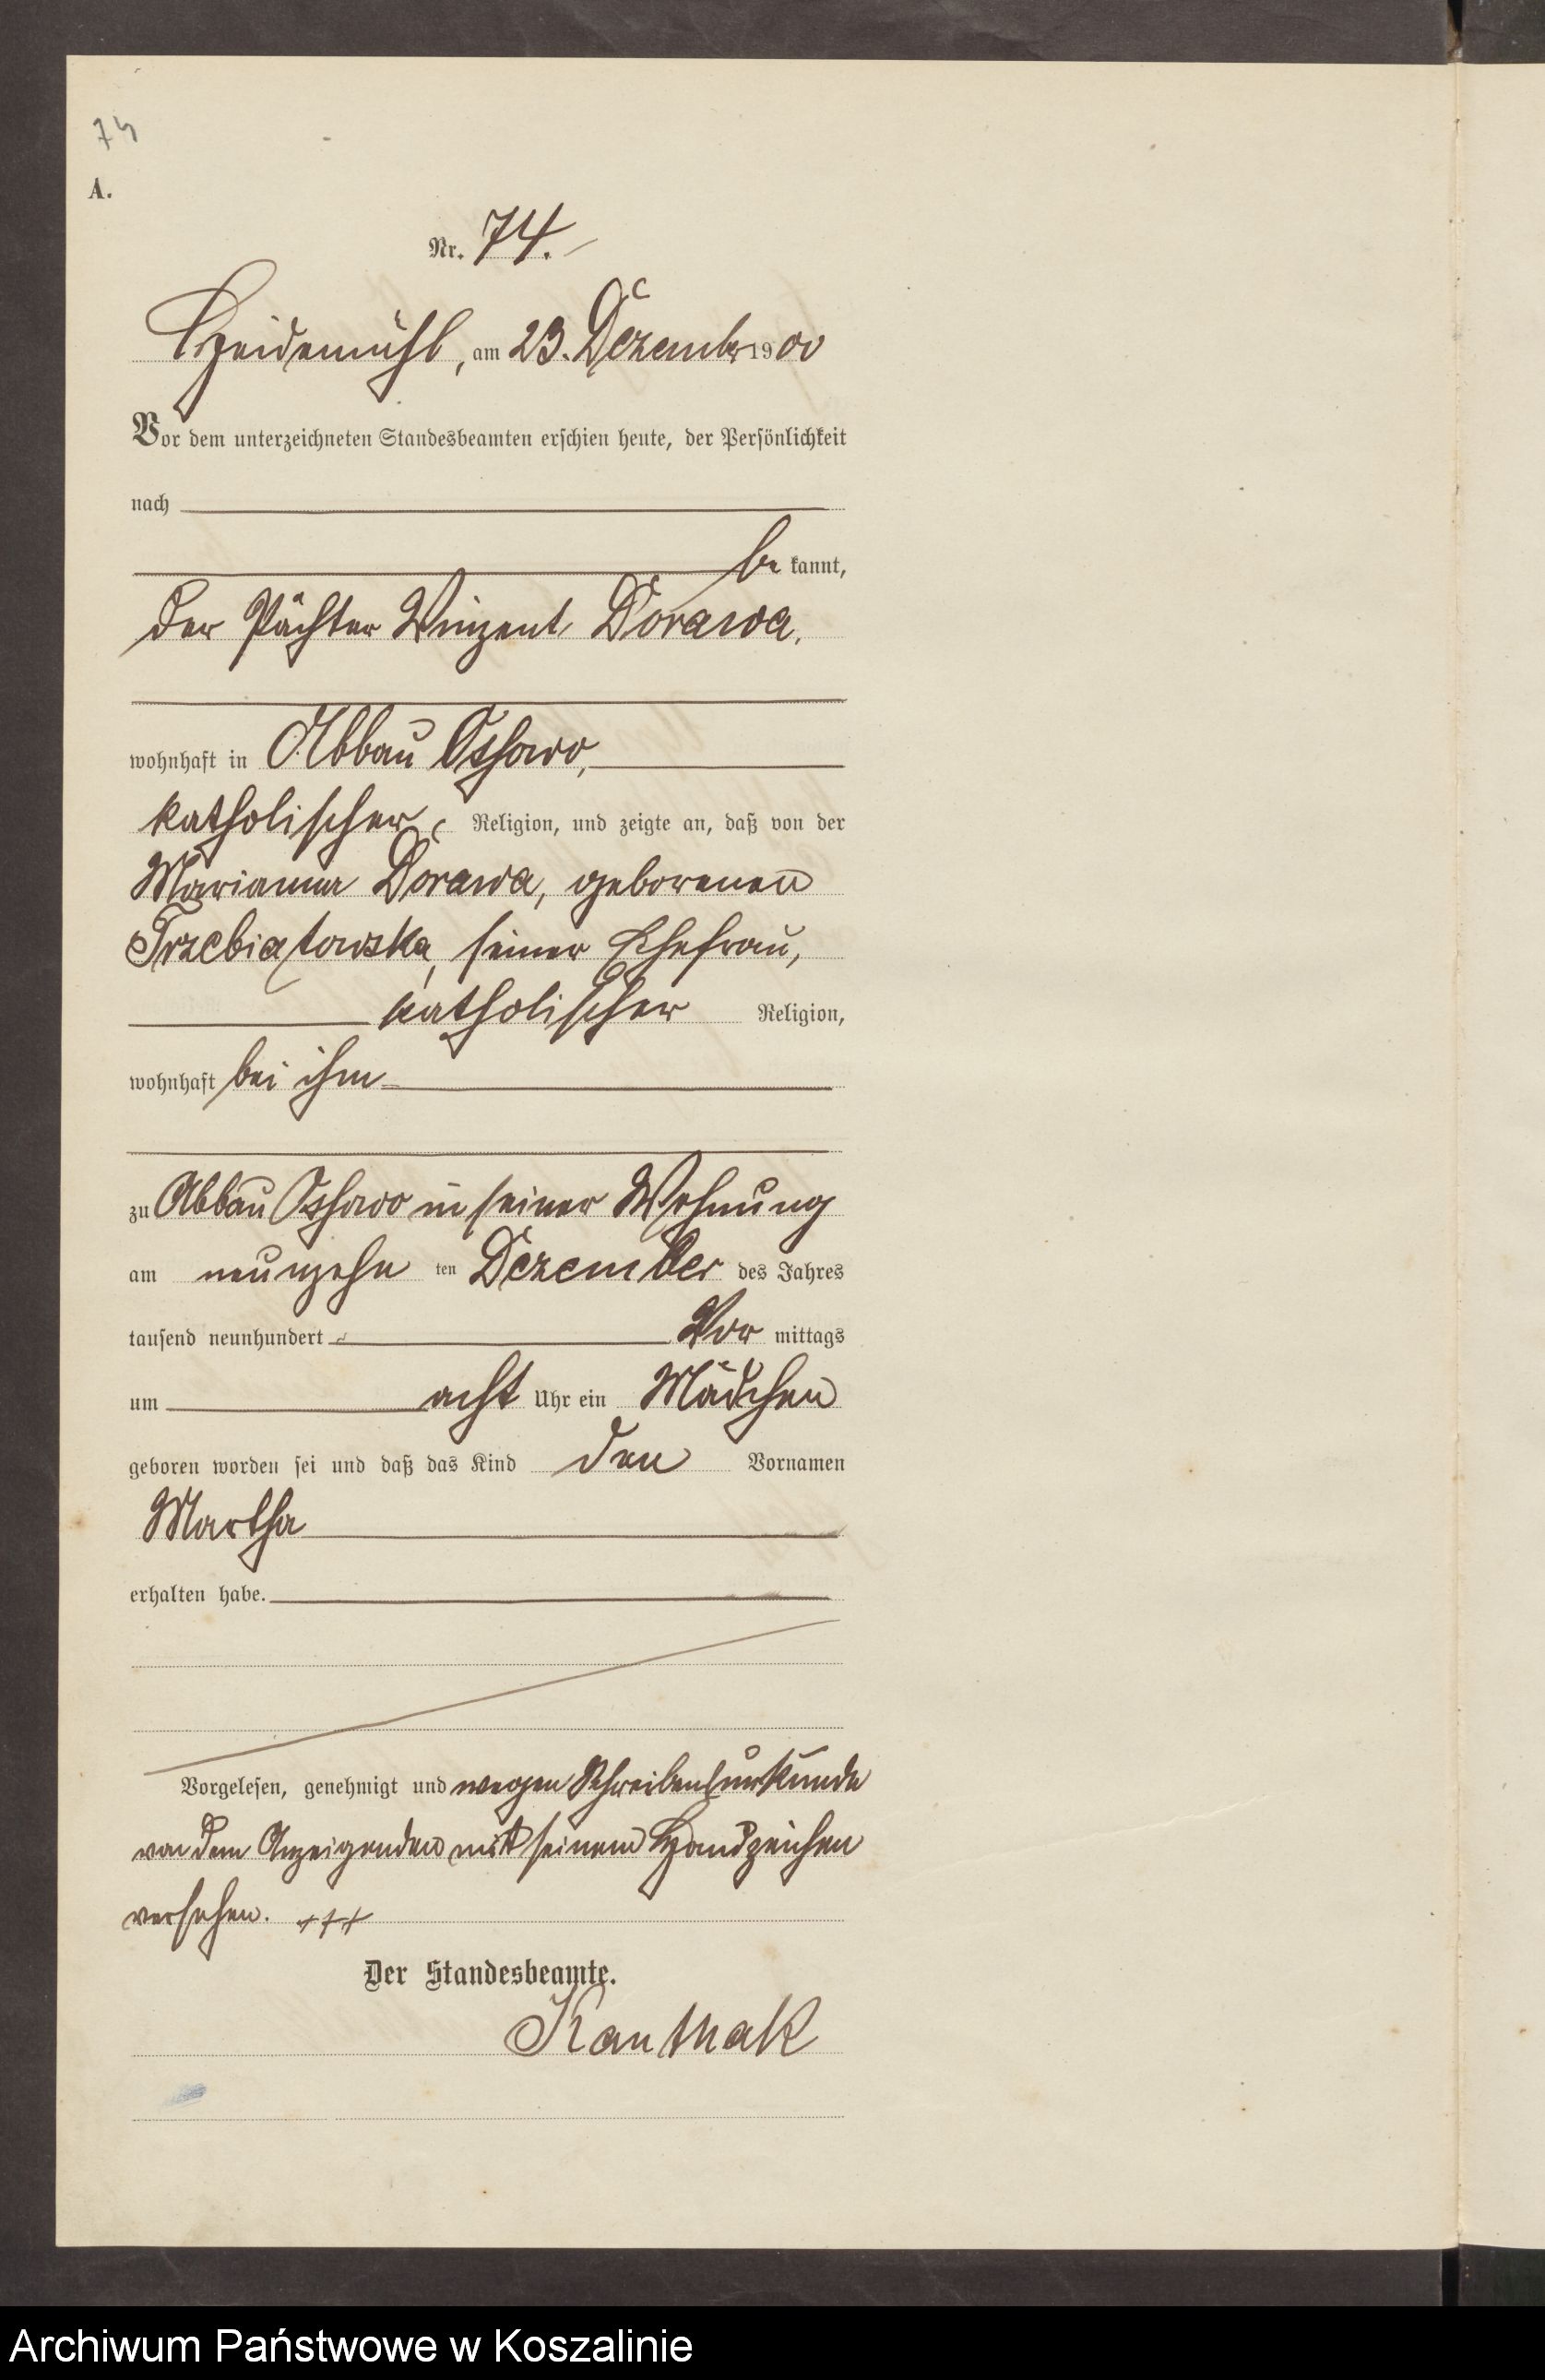 74
A.
Nr. 74.
Heidemühl, am 23. Dezember 1900
Vor dem unterzeichneten Standesbeamten erschien heute, der Persönlichkeit
nach
be kannt,
der Pächter Vinzent Dorawa,
wohnhaft in Abbau Ossowo,
katholischer Religion, und zeigte an, daß von der
Marianna Dorawa, geborenen
Trzebiatowska, seiner Ehefrau,
katholischer Religion,
wohnhaft bei ihm
zu Abbau Ossowo in seiner Wohnung
am neunzehn ten Dezember des Jahres
tausend neunhundert Vor mittags
um acht Uhr ein Mädchen
geboren worden sei und daß das Kind den Vornamen
Martha
erhalten habe.
Vorgelesen, genehmigt und wegen Schreibensunkunde
von dem Anzeigenden mit seinem Handzeichen
versehen. +++
Der Standesbeamte.
Kanthak
Archiwum Państwowe w Koszalinie